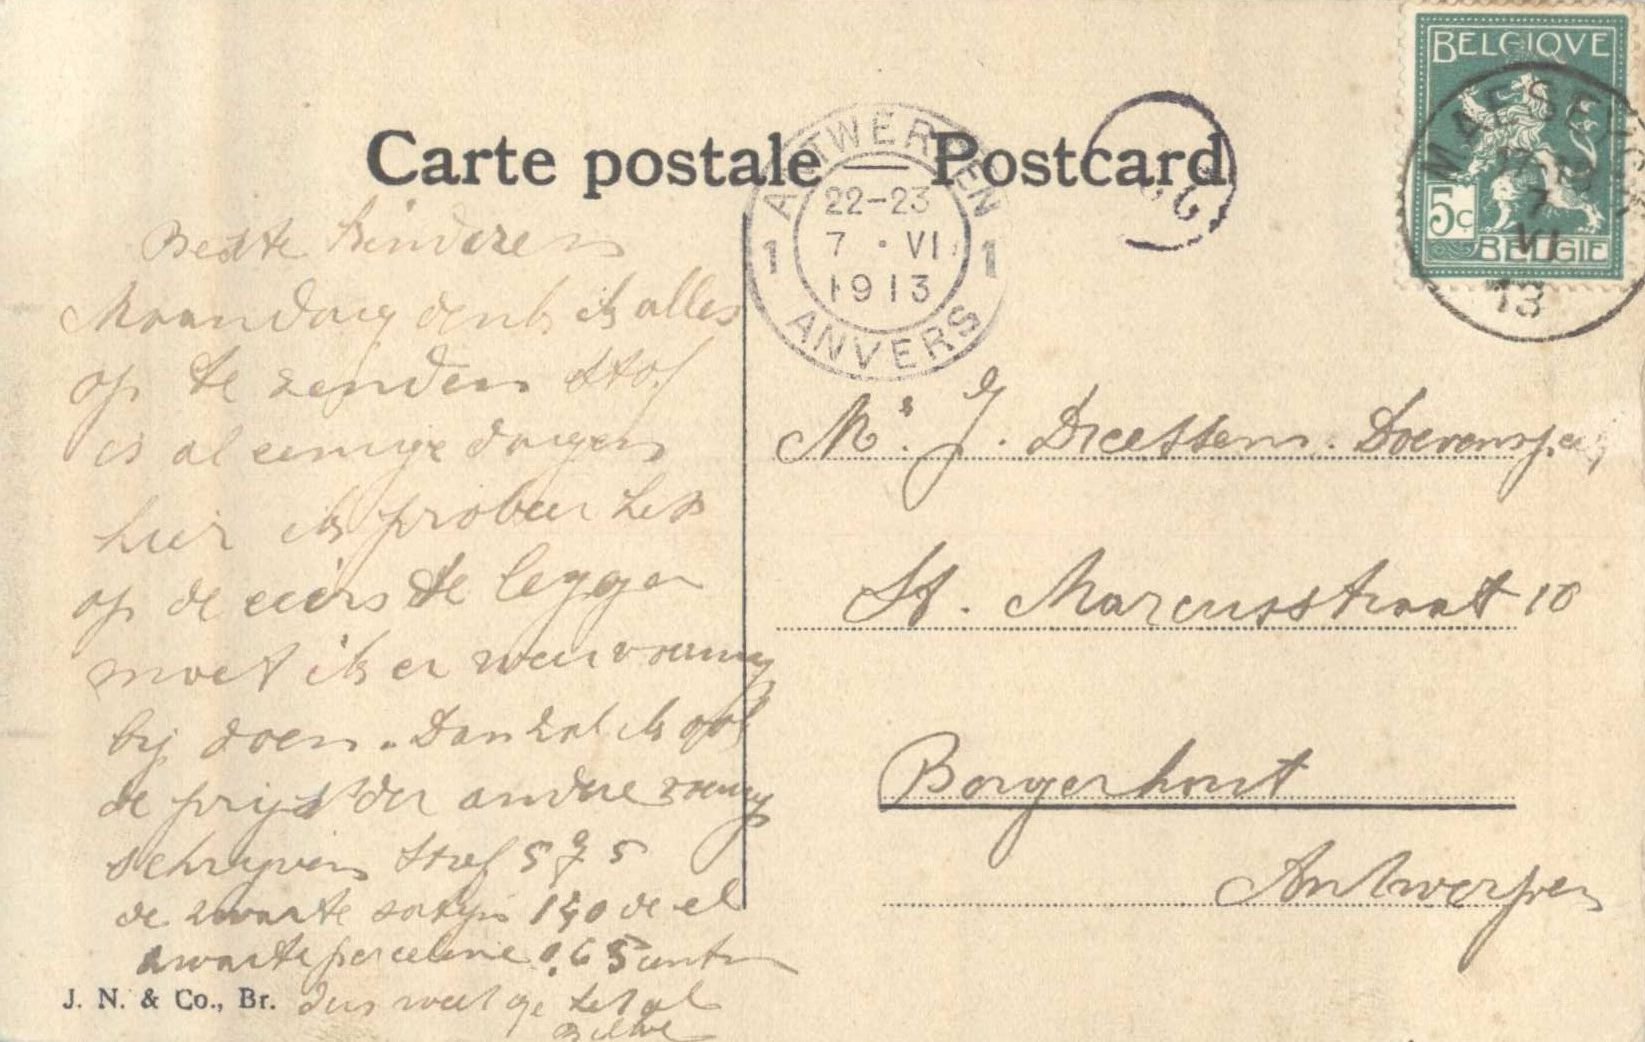 Carte postale — Postcard
BELGIQUE
5c
BELGIË
MAESEYCK
7
VI
13
ANTWERPEN
22-23
1 7 · VI 1
1913
ANVERS
Beste Kinderen
Maandag denk ik alles
op te zenden Stof
is al eenige dagen
hier ik probeer het
op de eers te leggen
moet ik er weer
bij doen. Dan zal ik ook
de prijs der andere
schrijven Stof 5 75
de zwarte satijn 1,40 de el
zwarte perceline 0.65 centen
dus weet ge het al
J. N. & Co., Br.
Mr. J. Dreessens.
St. Marcusstraat 10
Borgerhout
Antwerpen